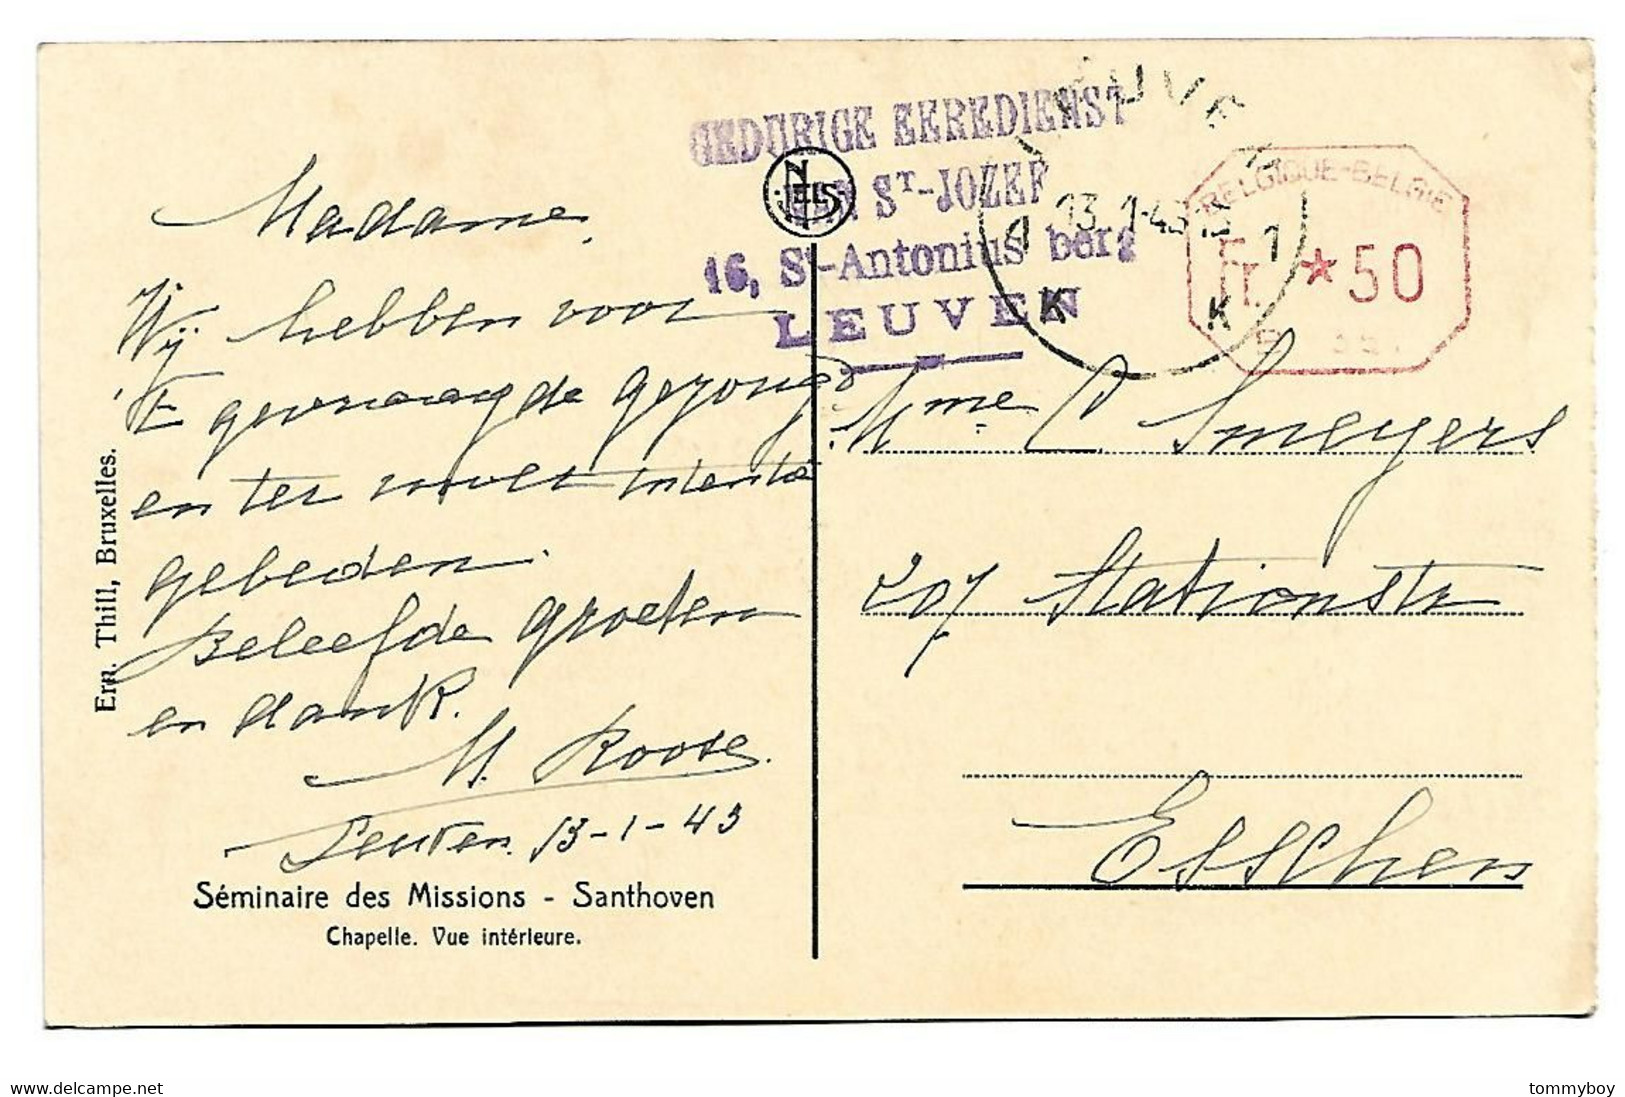 GEDURIGE EEREDIENST
VAN ST-JOZEF
16, St-Antonius berg
LEUVEN
NELS
LEUVEN
1 13.1-43 1
K K
BELGIQUE-BELGIE
Fr. ★50
Madame,
Wij hebben voor
E gevraagde gezongd
en ter intentie
gebeden.
Beleefde groeten
en dank.
M. Roose.
Leuven. 13-1-43
Séminaire des Missions - Santhoven
Chapelle. Vue intérieure.
Ern. Thill, Bruxelles.
Mme C. Smeyers
207 Stationstr
Esschen
delcampe.net
tommyboy